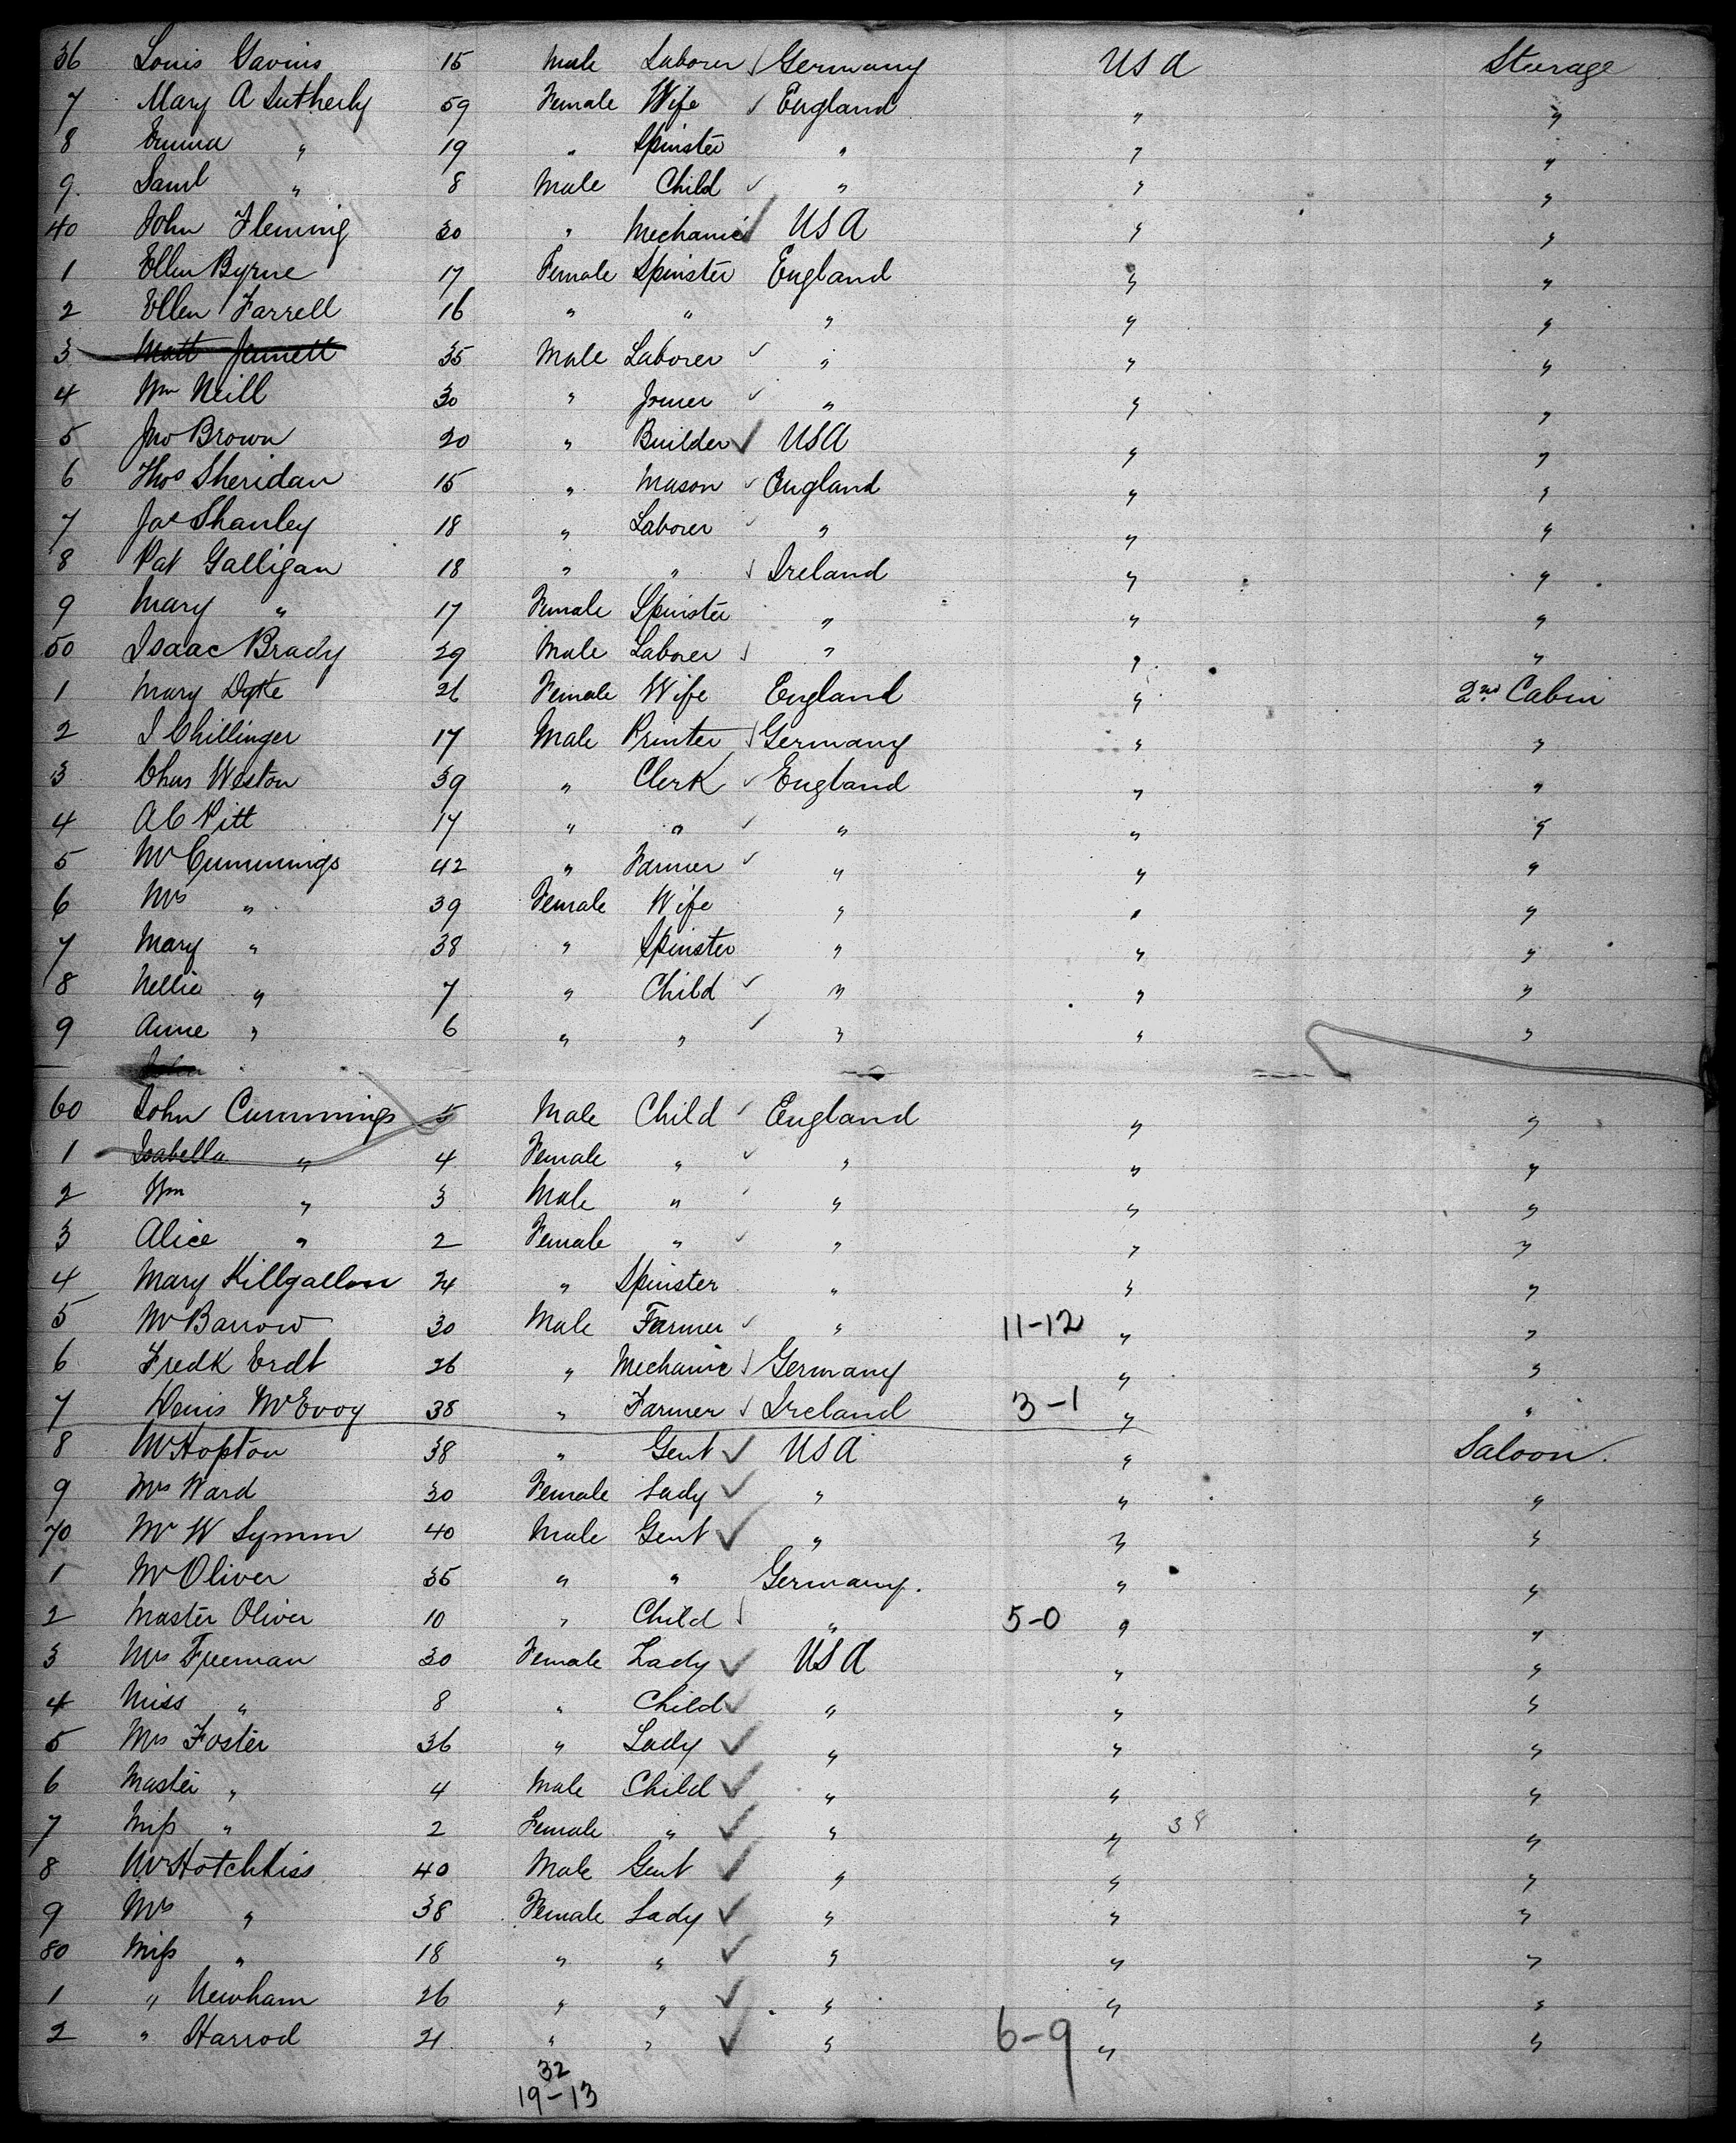 36 Louis Gavins 15 Male Laborer Germany USA Steerage
7 Mary A Sutherly 59 Female Wife England " "
8 Emma " 19 " Spinster " " "
9. Saml " 8 Male Child " " "
40 John Fleming 30 " Mechanic USA " "
1 Ellen Byrne 17 Female Spinster England " "
2 Ellen Farrell 16 " " " " "
3 Matt Jennett 35 Male Laborer " " "
4 Wm Neill 30 " Joiner " " "
5 Jno Brown 20 " Builder USA " "
6 Thos Sheridan 15 " Mason England " "
7 Jas Shanley 18 " Laborer " " "
8 Pat Galligan 18 " " Ireland " "
9 Mary " 17 Female Spinster " " "
50 Isaac Brady 29 Male Laborer " " "
1 Mary Dyke 26 Female Wife England " 2nd Cabin
2 I Chillinger 17 Male Printer Germany " "
3 Chas Weston 39 " Clerk England " "
4 A C Pitt 17 " " " " "
5 Mr Cummings 42 " Farmer " " "
6 Mrs " 39 Female Wife " " "
7 Mary " 38 " Spinster " " "
8 Nellie " 7 " Child " " "
9 Anne " 6 " " " " "
John
60 John Cummings 5 Male Child England " "
1 Isabella " 4 Female " " " "
2 Wm " 3 Male " " " "
3 Alice " 2 Female " " " "
4 Mary Killgallon 24 " Spinster " " "
5 Mr Barrow 30 Male Farmer " 11-12 " "
6 Fredk Erdt 26 " Mechanic Germany " "
7 Denis McEvoy 38 " Farmer Ireland 3-1 " "
8 Mr Hopton 38 " Gent USA " Saloon.
9 Mrs Ward 30 Female Lady " " "
70 Mr W Symm 40 Male Gent " " "
1 Mr Oliver 35 " " Germany. " "
2 Master Oliver 10 " Child " 5-0 " "
3 Mrs Freeman 30 Female Lady USA " "
4 Miss " 8 " Child " " "
5 Mrs Foster 36 " Lady " " "
6 Master " 4 Male Child " " "
7 Miss " 2 Female " " " 38 "
8 Mr Hotchkiss 40 Male Gent " " "
9 Mrs " 38 Female Lady " " "
80 Miss " 18 " " " " "
1 " Newham 26 " " " " "
2 " Harrod 21 " " " 6-9 " "
32
19-13